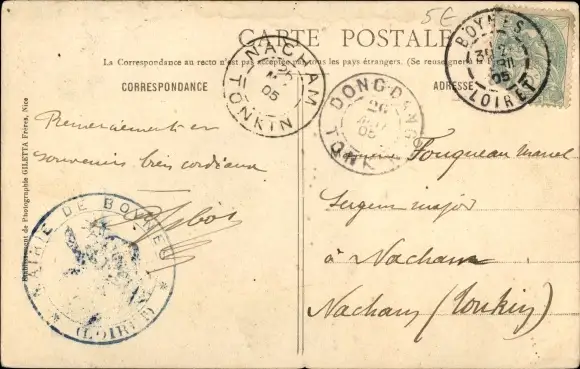 5€
CARTE POSTALE
La Correspondance au recto n'est pas acceptée par tous les pays étrangers. (Se renseigner
CORRESPONDANCE
ADRESSE
NACHAM
05
TONKIN
DONG-DANG
26
05
TONKIN
BOYNES
05
LOIRET
Remerciements et
souvenirs très cordiaux
Fouqueau Marcel
Sergent major
à Nacham
Nacham (Tonkin)
MAIRIE DE BOYNES
(LOIRET)
Etablissement de Photographie GILETTA Frères, Nice